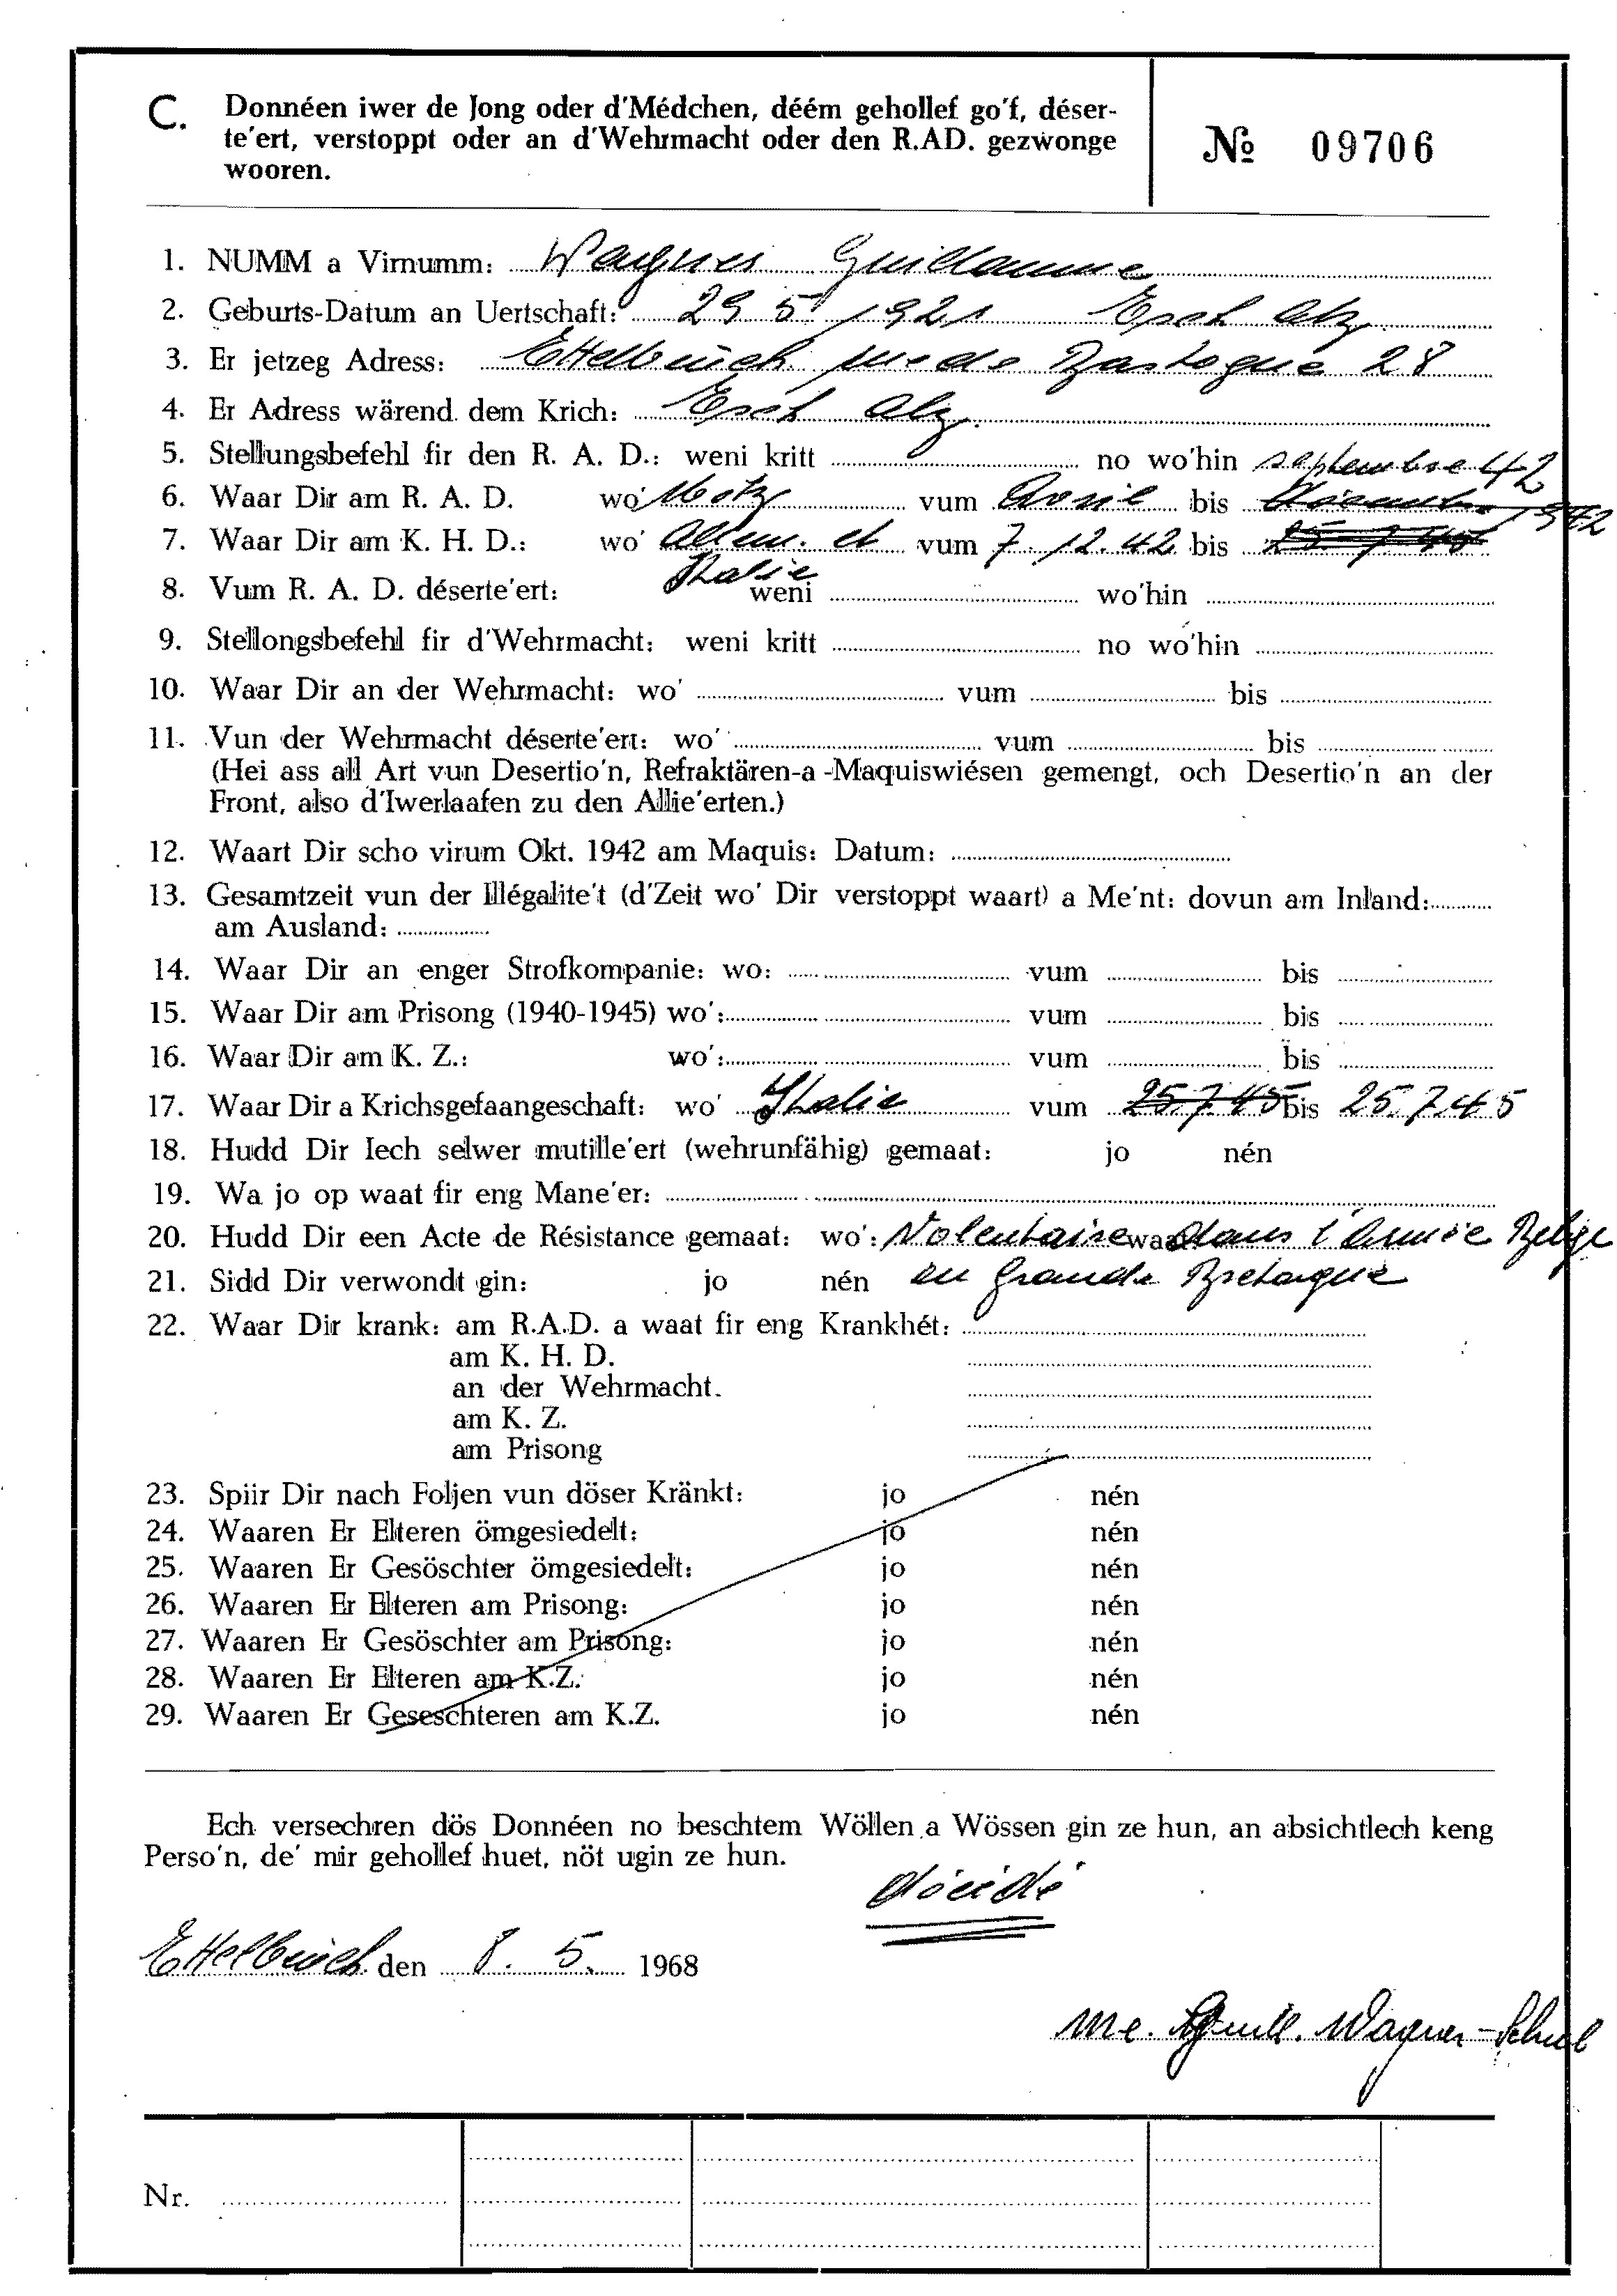 C. Donnéen iwer de Jong oder d'Médchen, déém gehollef go'f, déser-
te'ert, verstoppt oder an d'Wehrmacht oder den R.AD. gezwonge
wooren.
№ 09706
1. NUMM a Virnumm: Wagner Guillaume
2. Geburts-Datum an Uertschaft: 29 5 1921 Esch Alz.
3. Er jetzeg Adress: Ettelbrück rue de Bastogne 28
4. Er Adress wärend dem Krich: Esch Alz.
5. Stellungsbefehl fir den R. A. D.: weni kritt no wo'hin septembre 42
6. Waar Dir am R. A. D. wo' Metz vum Avril bis 1942
7. Waar Dir am K. H. D.: wo' Allem. et vum 7.12.42 bis 25 7 45
Italie
8. Vum R. A. D. déserte'ert: weni wo'hin
9. Stellongsbefehl fir d'Wehrmacht: weni kritt no wo'hin
10. Waar Dir an der Wehrmacht: wo' vum bis
11. Vun der Wehrmacht déserte'ert: wo' vum bis
(Hei ass all Art vun Desertio'n, Refraktären-a-Maquiswiésen gemengt, och Desertio'n an der
Front, also d'Iwerlaafen zu den Allie'erten.)
12. Waart Dir scho virum Okt. 1942 am Maquis: Datum:
13. Gesamtzeit vun der Illégalite't (d'Zeit wo' Dir verstoppt waart) a Me'nt: dovun am Inland:
am Ausland:
14. Waar Dir an enger Strofkompanie: wo: vum bis
15. Waar Dir am Prisong (1940-1945) wo': vum bis
16. Waar Dir am K. Z.: wo': vum bis
17. Waar Dir a Krichsgefaangeschaft: wo' Italie vum 25.7.45 bis 25.7.45
18. Hudd Dir Iech selwer mutille'ert (wehrunfähig) gemaat: jo nén
19. Wa jo op waat fir eng Mane'er:
20. Hudd Dir een Acte de Résistance gemaat: wo': Volentaire waat dans l'Armée Belge
21. Sidd Dir verwondt gin: jo nén en Grande Bretagne
22. Waar Dir krank: am R.A.D. a waat fir eng Krankhét:
am K. H. D.
an der Wehrmacht.
am K. Z.
am Prisong
23. Spiir Dir nach Foljen vun döser Kränkt: jo nén
24. Waaren Er Elteren ömgesiedelt: jo nén
25. Waaren Er Gesöschter ömgesiedelt: jo nén
26. Waaren Er Elteren am Prisong: jo nén
27. Waaren Er Gesöschter am Prisong: jo nén
28. Waaren Er Elteren am K.Z. jo nén
29. Waaren Er Geseschteren am K.Z. jo nén
Ech versechren dös Donnéen no beschtem Wöllen a Wössen gin ze hun, an absichtlech keng
Perso'n, de' mir gehollef huet, nöt ugin ze hun.
décidé
Ettelbrück den 8. 5. 1968
Me. Guill. Wagner-
Nr.